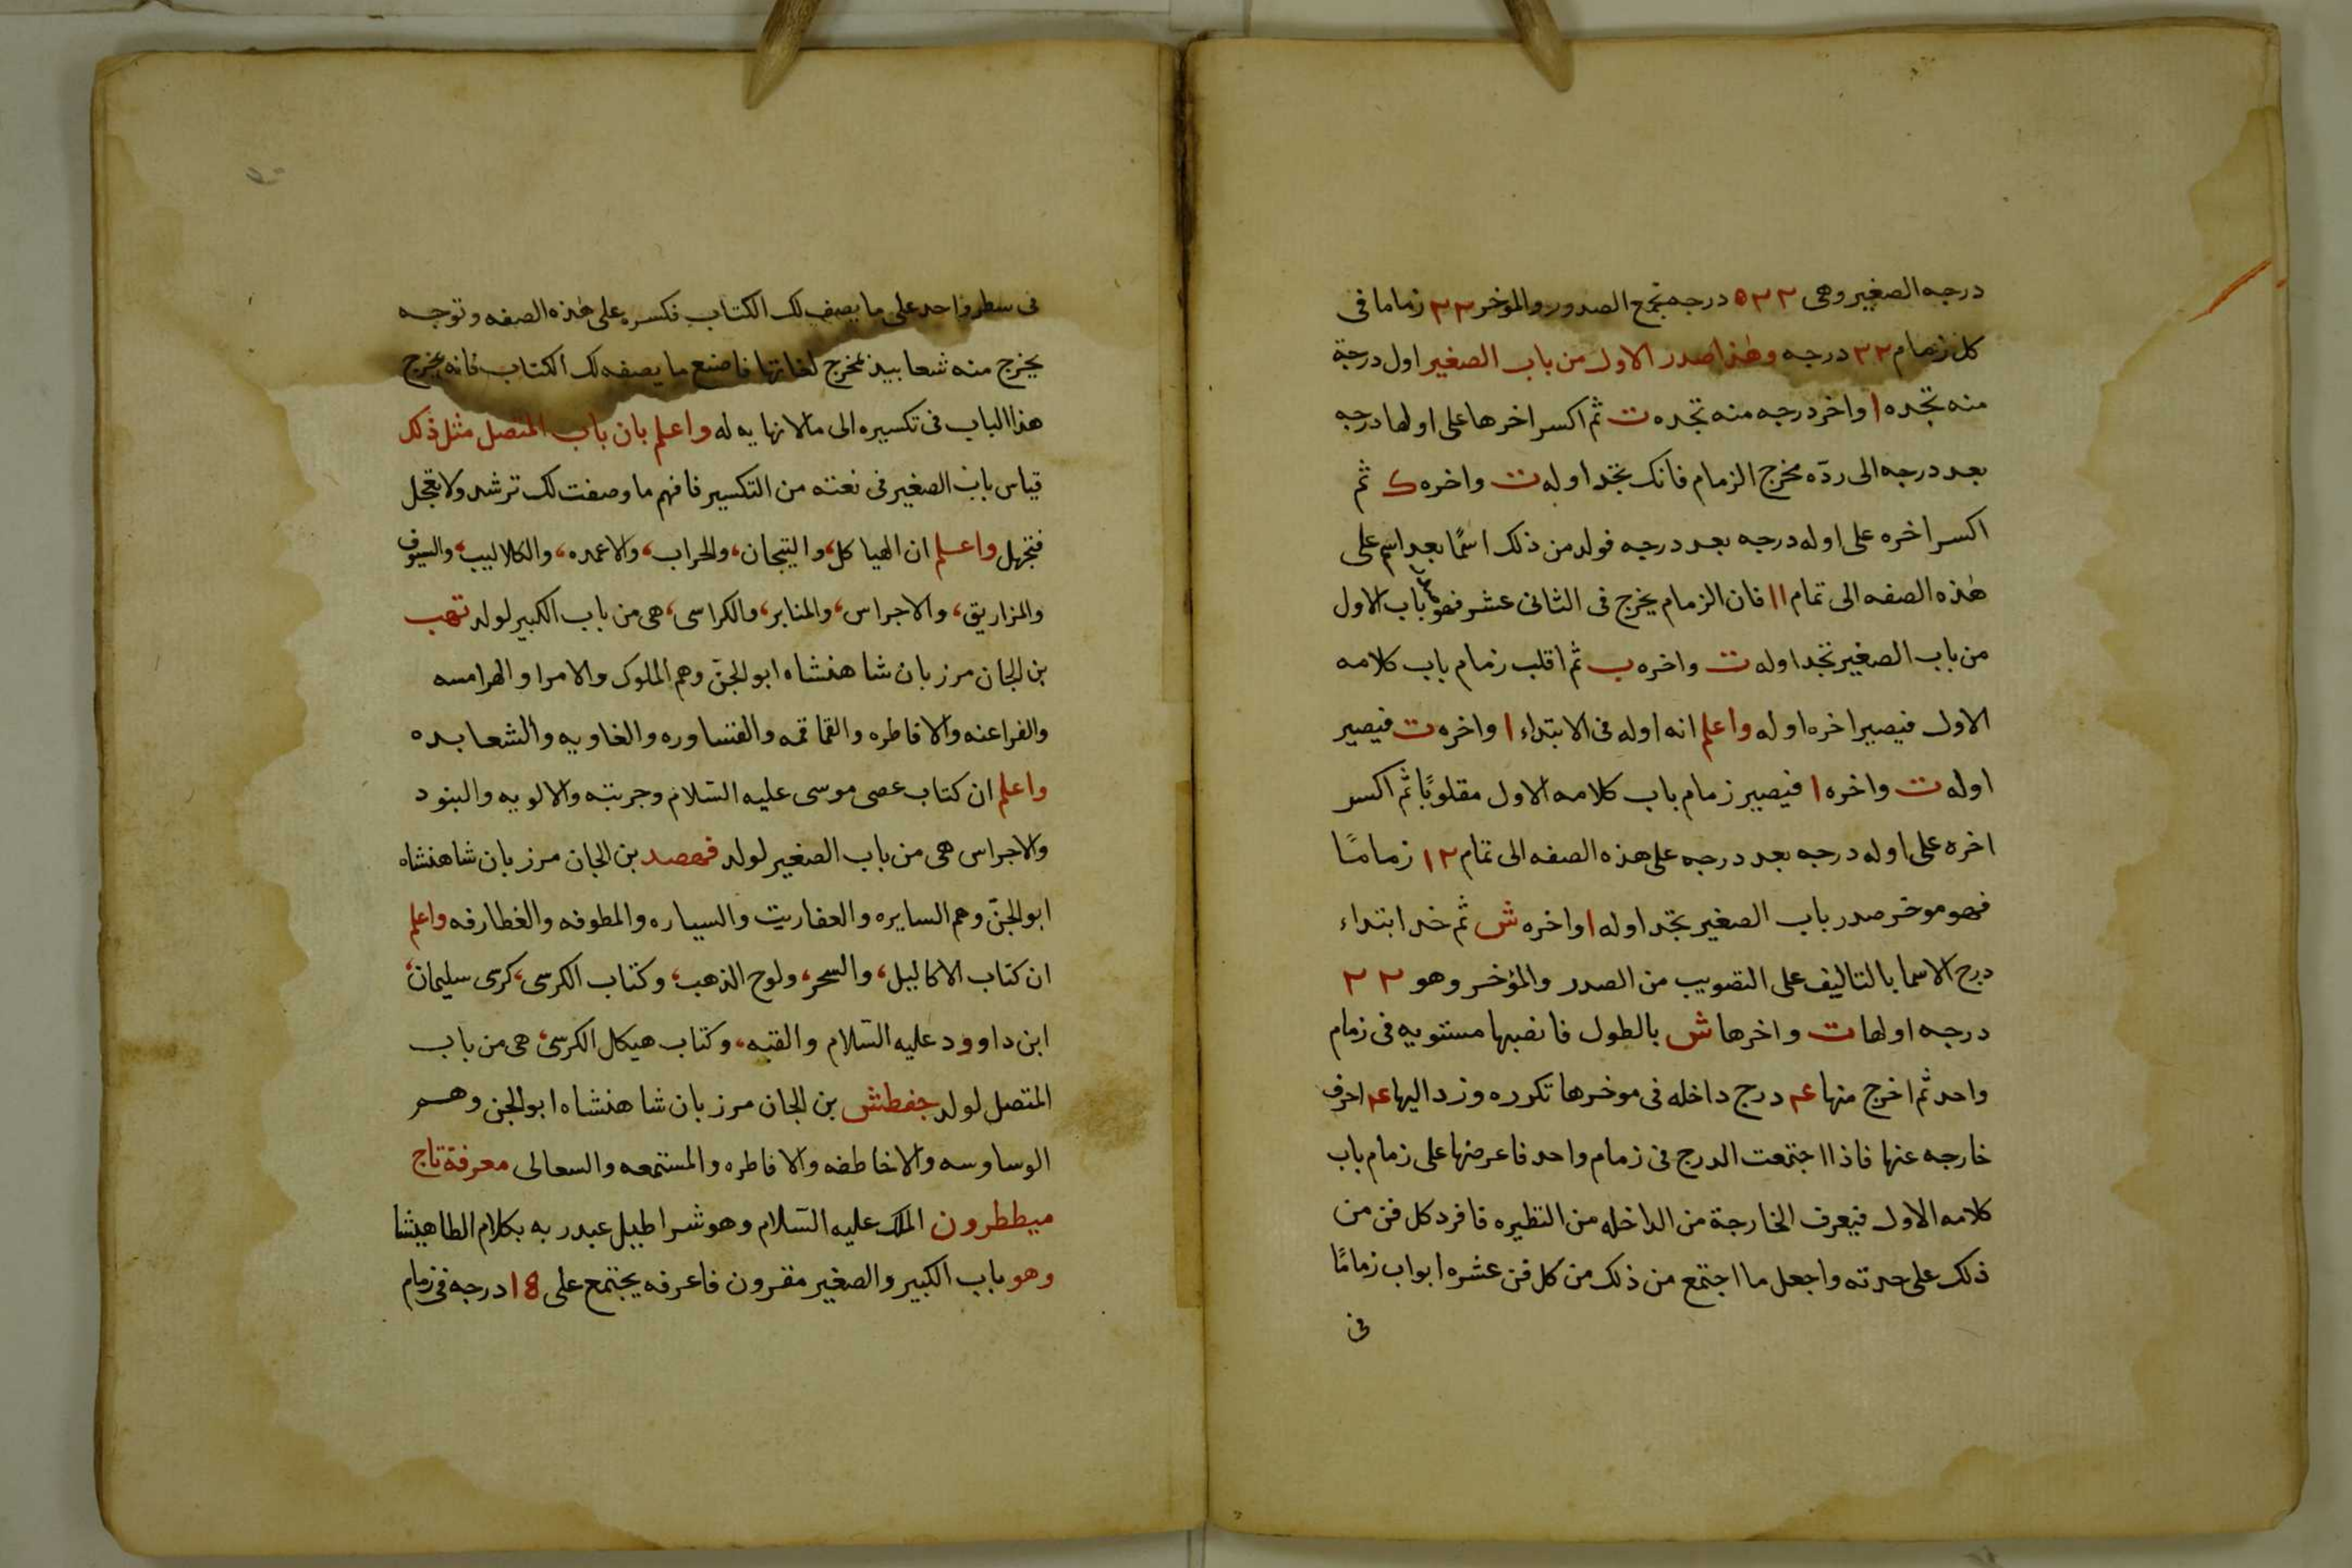 درجه الصغير وهى ٥٢٢ درجه تجمع الصدور والموخر ٢٢ زماما فى
كل زمام ٢٢ درجه وهذا صدر الاول من باب الصغير اول درجة
منه تجده ا واخر درجه منه تجده ت ثم اكسر اخرها على اولها درجه
بعد درجه الى ردّه مخرج الزمام فانك تجد اوله ت واخره ك ثم
اكسر اخره على اوله درجه بعد درجه فولد من ذلك اسمًا بعد اسم على
هذه الصفه الى تمام ١١ فان الزمام يخرج فى الثانى عشر فهو باب الاول
من باب الصغير تجد اوله ت واخره ب ثم اقلب زمام باب كلامه
الاول فيصير اخره اوله واعلم انه اوله فى الابتداء ا واخره ت فيصير
اوله ت واخره ا فيصير زمام باب كلامه الاول مقلوبًا ثم اكسر
اخره على اوله درجه بعد درجه على هذه الصفه الى تمام ١٢ زمامًا
فهو موخر صدر باب الصغير تجد اوله ا واخره ش ثم خد ابتداء
درج الاسما بالتاليف على التصويب من الصدر والمؤخر وهو ٢٢
درجه اولها ت واخرها ش بالطول فانصبها مستويه فى زمام
واحد ثم اخرج منها ٤ درج داخله فى موخرها تكرره وزد اليها ٤ احرف
خارجه عنها فاذا اجتمعت الدرج فى زمام واحد فاعرضها على زمام باب
كلامه الاول فيعرف الخارجة من الداخله من النظيره فافرد كل فن من
ذلك على حدته واجعل ما اجتمع من ذلك من كل فن عشره ابواب زمامًا
فى
فى سطر واحد على ما يصف لك الكتاب فكسره على هذه الصفه وتوجه
يخرج منه شعابيذ تخرج لغاتها فاصنع ما يصفه لك الكتاب فانه يخرج
هذا الباب فى تكسيره الى مالا نهايه له واعلم بان باب المتصل مثل ذلك
قياس باب الصغير فى نعته من التكسير فافهم ما وصفت لك ترشد ولا تعجل
فتجهل واعلم ان الهياكل، والتيجان، والحراب، والاعمده، والكلاليب، والسيوف
والمزاريق، والاجراس، والمنابر، والكراسى، هى من باب الكبير لولد تهب
بن الجان مرزبان شاهنشاه ابو الجنّ وهم الملوك والامرا والهرامسه
والفراعنه والافاطره والقماقمه والقساوره والغاويه والشعابده
واعلم ان كتاب عصى موسى عليه السّلام وجربته والالويه والبنود
والاجراس هى من باب الصغير لولد فهصد بن الجان مرزبان شاهنشاه
ابو الجنّ وهم السايره والعفاريت والسياره والمطوفه والغطارفه واعلم
ان كتاب الاكاليل، والسحر، ولوح الذهب، وكتاب الكرسى، كرسى سليمان،
ابن داوود عليه السّلام والقبه، وكتاب هيكل الكرسى، هى من باب
المتصل لولد جفطش بن الجان مرزبان شاهنشاه ابو الجن وهم
الوساوسه والاخاطفه والافاطره والمستمعه والسعالى معرفة تاج
ميططرون الملك عليه السّلام وهو شراطيل عبد ربه بكلام الطاهيشا
وهو باب الكبير والصغير مقرون فاعرفه يجتمع على 18 درجه فى زمام